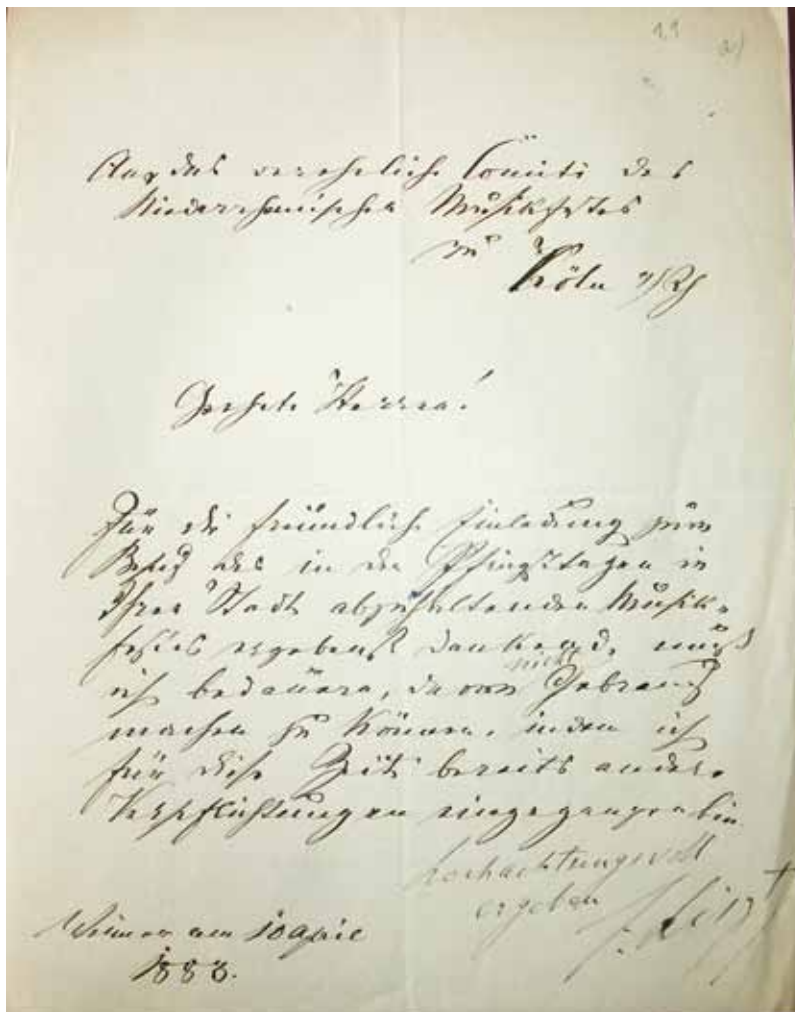 11
a)
An das verehrliche Comité des
Niederrheinischen Musikfestes
zu
Köln a/Rh
Geehrte Herren!
Für die freundliche Einladung zum
Besuch des in den Pfingsttagen in
Ihrer Stadt abzuhaltenden Musik-
festes ergebenst dankend, muß
ich bedauern, davon nicht Gebrauch
machen zu können, indem ich
für diese Zeit bereits andere
Verpflichtungen eingegangen bin.
hochachtungsvoll
ergeben
F. Liszt
Weimar am 10 April
1883.